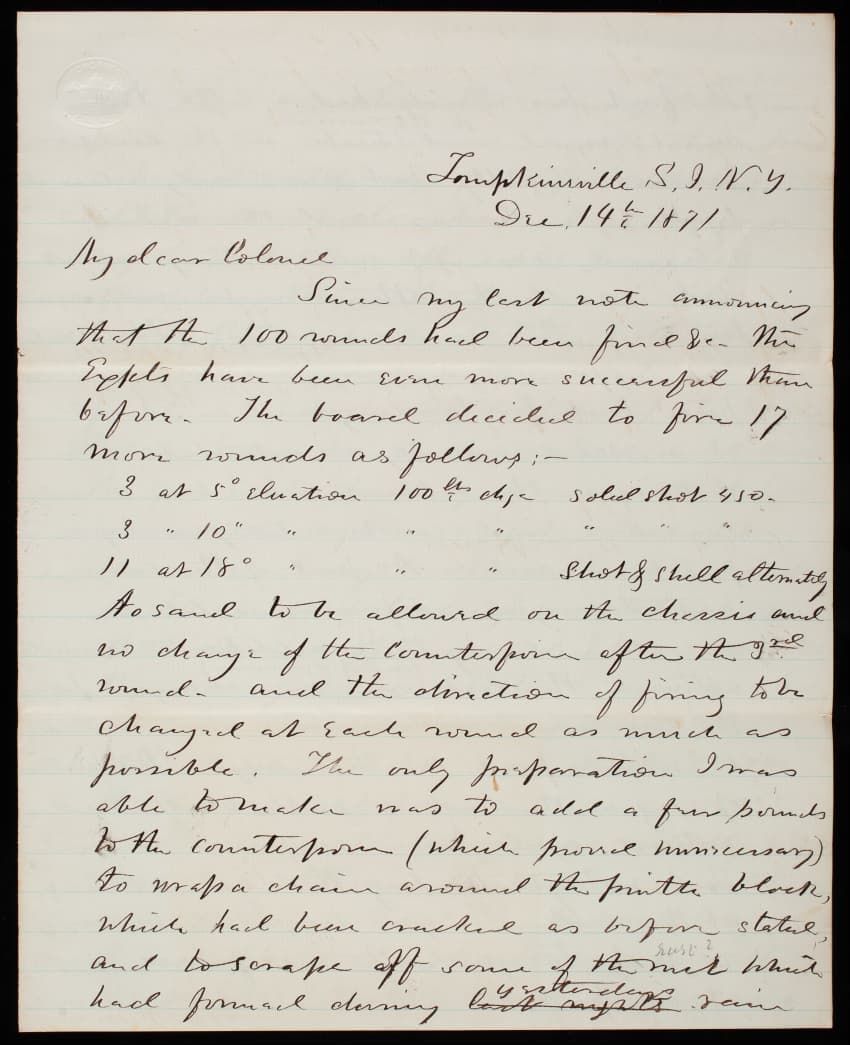 Tompkinsville, S. I. N. Y.
Dec. 14th 1871
My dear Colonel
Since my last note announcing
that the 100 rounds had been fired &c. the
Expts have been even more successful than
before. The board decided to fire 17
more rounds as follows:—
3 at 5° elevation 100 lbs chge solid shot 450.
3 " 10° " " " " " "
11 at 18° " " " Shot & shell alternately
No sand to be allowed on the chassis and
no change of the Counterpoise after the 3rd
round. and the direction of firing to be
changed at each round as much as
possible. The only preparation I was
able to make was to add a few pounds
to the counterpoise (which proved unnecessary)
to wrap a chain around the pintle block,
which had been cracked as before stated,
rust?
and to scrape off some of the rust which
yesterdays
had formed during last nights rain